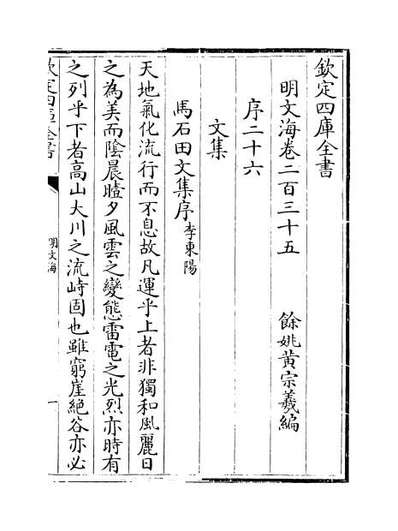 欽定四庫全書
明文海卷二百三十五
餘姚黃宗羲編
序二十六
文集
馬石田文集序李東陽
天地氣化流行而不息故凡運乎上者非獨和風麗日
之為美而陰晨曀夕風雲之變態雷電之光烈亦時有
之列乎下者高山大川之流峙固也雖窮崖絶谷亦必
欽定四庫全書
明文海
一